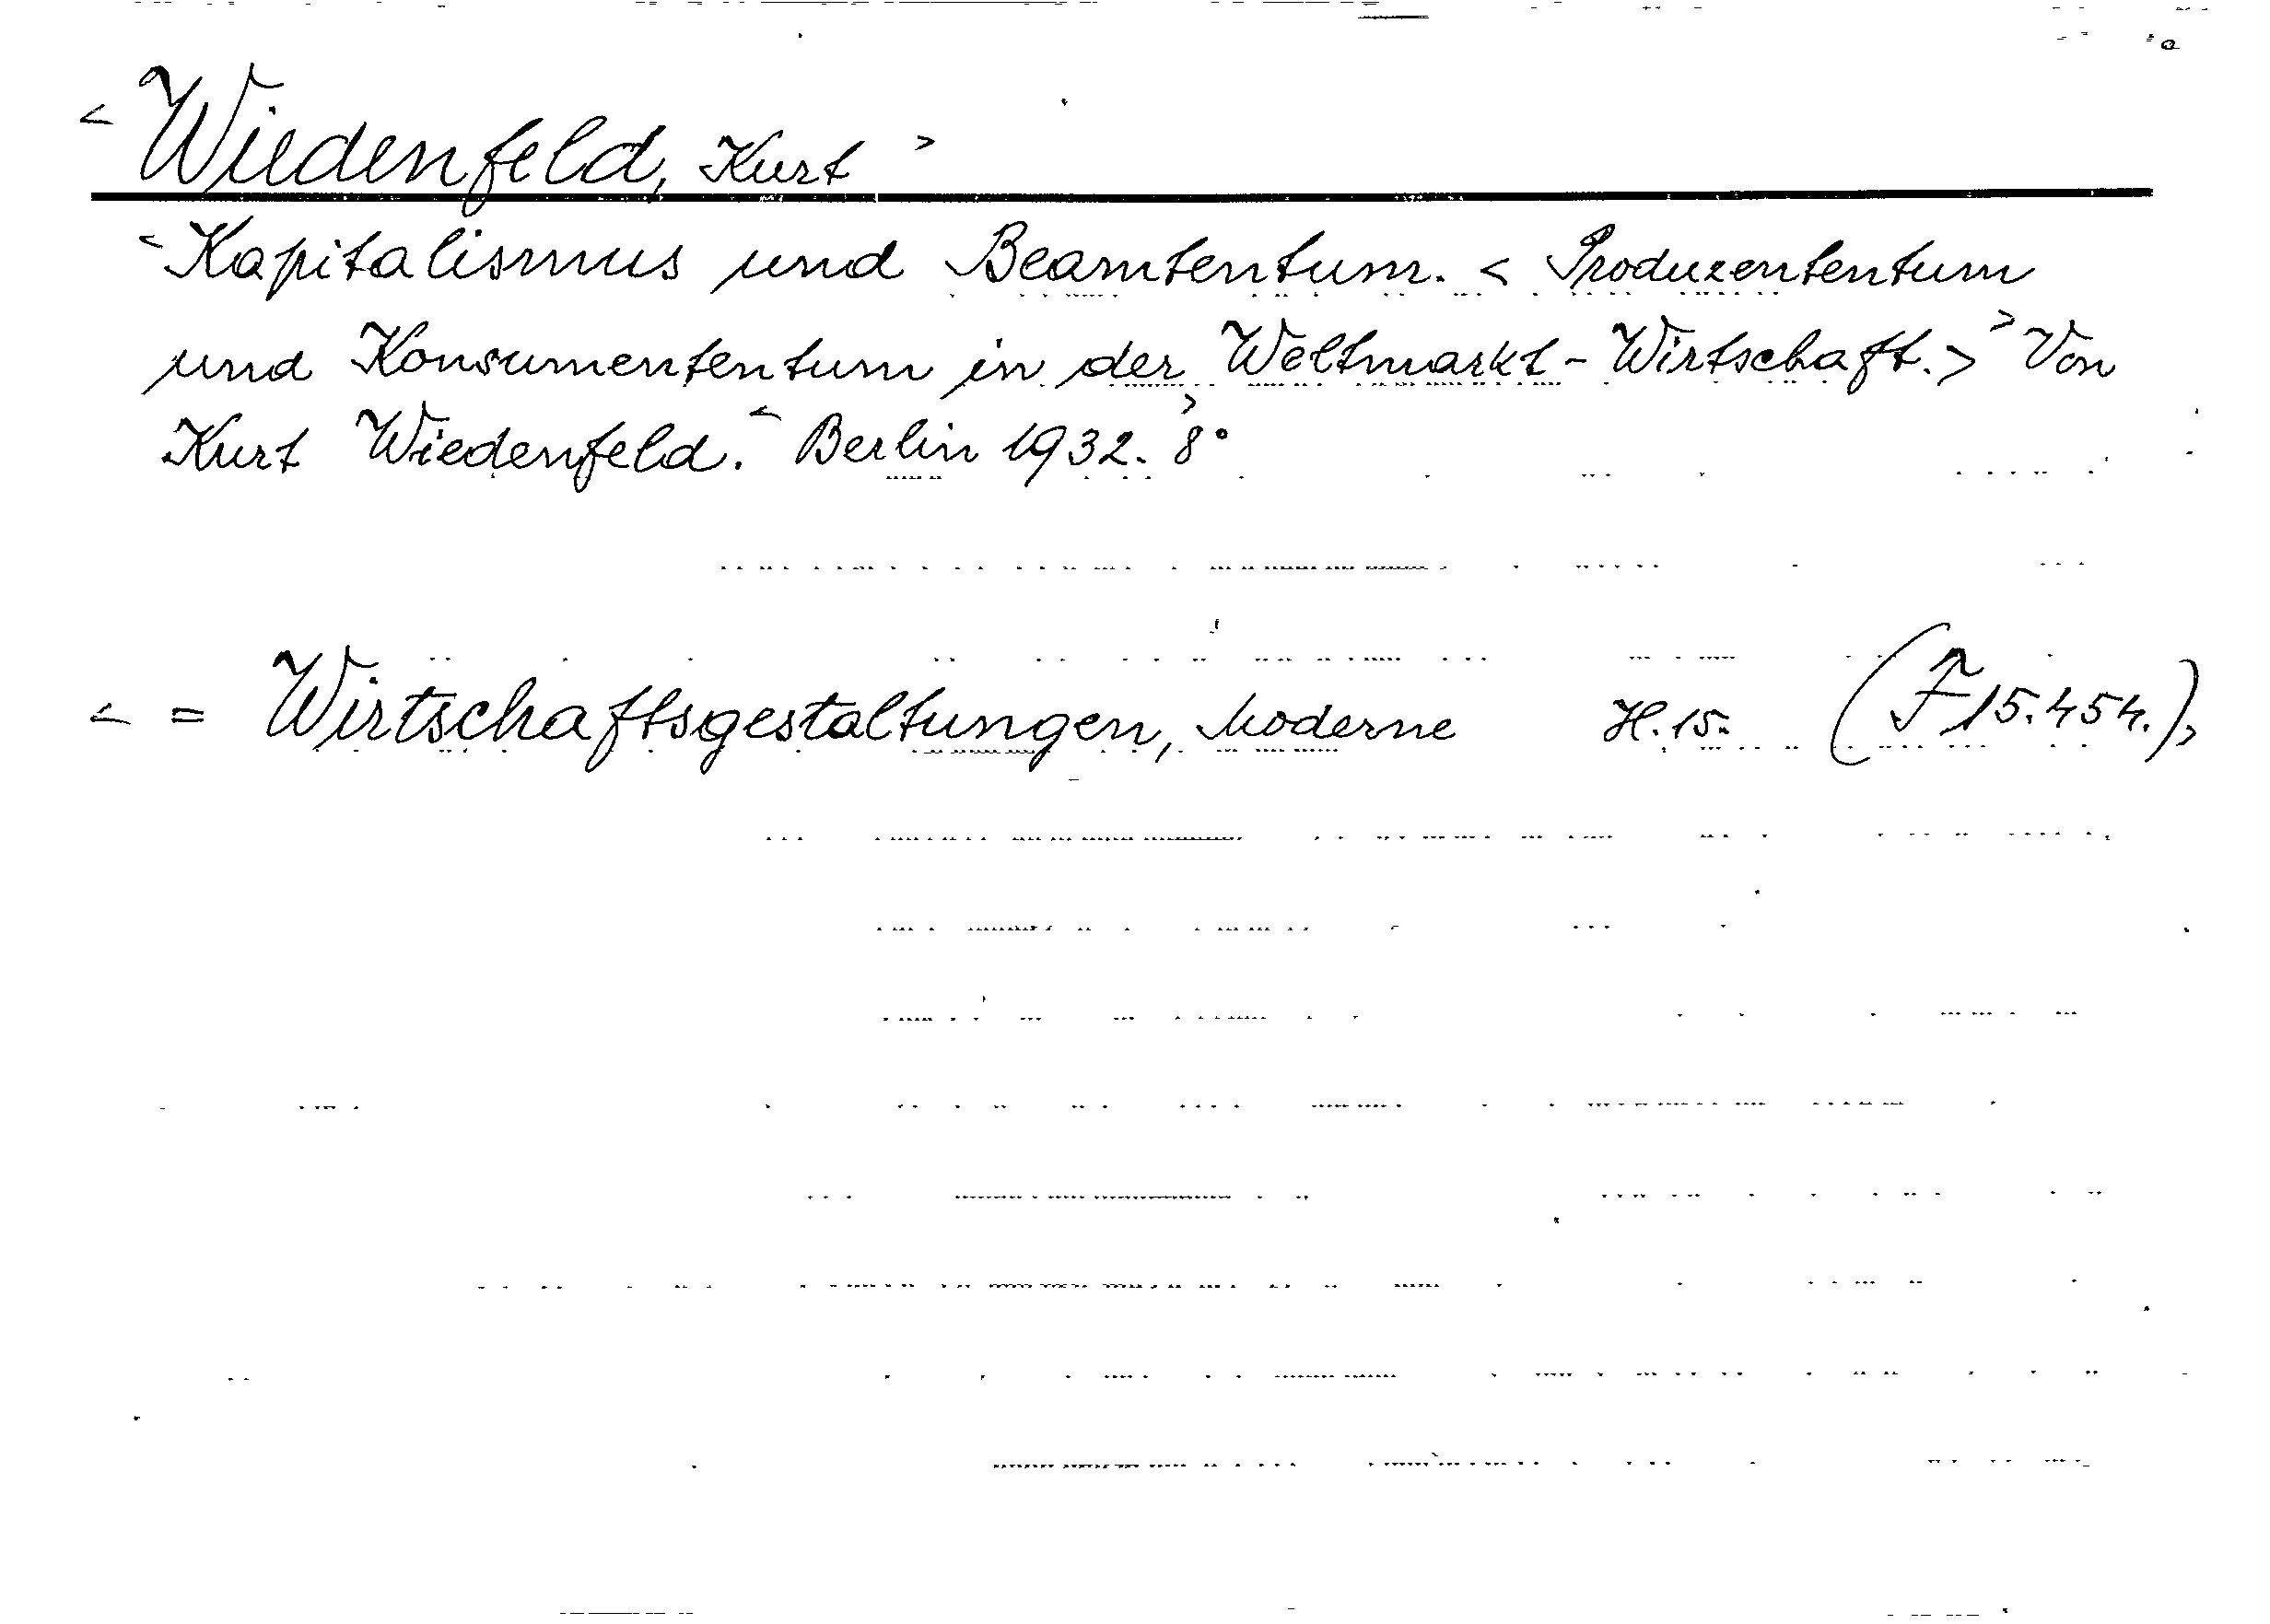 < Wiedenfeld, Kurt >
< Kapitalismus und Beamtentum. < Produzententum
und Konsumententum in der Weltmarkt-Wirtschaft. > > Von
Kurt Wiedenfeld. < Berlin 1932. 8° >
< = Wirtschaftsgestaltungen, Moderne H. 15. (F 15.454.) >